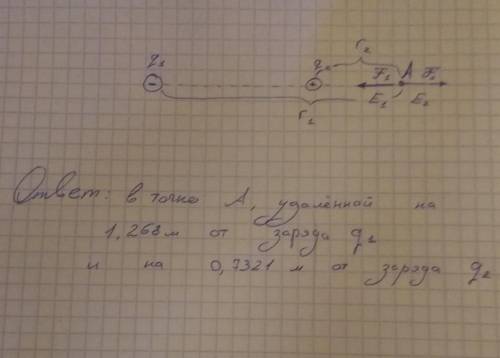 r₂
q₁ q₂ F₁ A F₂
E₁ E₂
r₁
Ответ: в точке A, удалённой на
1,268 м от заряда q₁
и на 0,7321 м от заряда q₂